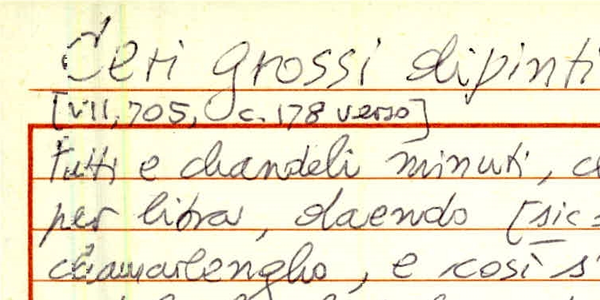 Ceri grossi dipinti
[VII, 705, c. 178 verso]
tutti e chandeli minuti,
per libra, daendo [sic
chamarlengho, e così s